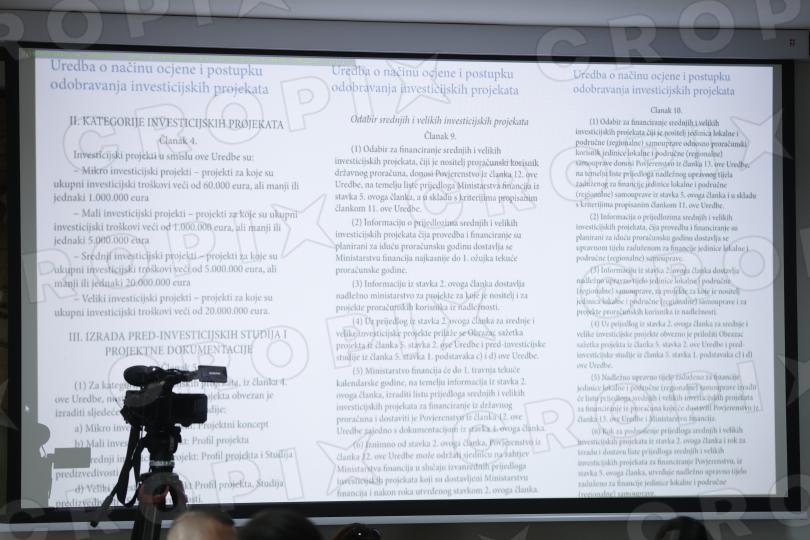 Uredba o načinu ocjene i postupku
odobravanja investicijskih projekata
II. KATEGORIJE INVESTICIJSKIH PROJEKATA
Članak 4.
Investicijski projekti u smislu ove Uredbe su:
– Mikro investicijski projekti – projekti za koje su
ukupni investicijski troškovi veći od 60.000 eura, ali manji ili
jednaki 1.000.000 eura
– Mali investicijski projekti – projekti za koje su ukupni
investicijski troškovi veći od 1.000.000 eura, ali manji ili
jednaki 5.000.000 eura
– Srednji investicijski projekti – projekti za koje su
ukupni investicijski troškovi veći od 5.000.000 eura, ali
manji ili jednaki 20.000.000 eura
– Veliki investicijski projekti – projekti za koje su
ukupni investicijski troškovi veći od 20.000.000 eura.
III. IZRADA PRED-INVESTICIJSKIH STUDIJA I
PROJEKTNE DOKUMENTACIJE
(1) Za kategorije projekta, iz članka 4.
ove Uredbe, projekta obvezan je
izraditi sljedeće
a) Mikro Projektni koncept
b) Mali Profil projekta
Profil projekta i Studija
predizvedivosti
d) Veliki Profil projekta, Studija
Uredba o načinu ocjene i postupku
odobravanja investicijskih projekata
Odabir srednjih i velikih investicijskih projekata
Članak 9.
(1) Odabir za financiranje srednjih i velikih
investicijskih projekata, čiji je nositelj proračunski korisnik
državnog proračuna, donosi Povjerenstvo iz članka 12. ove
Uredbe, na temelju liste prijedloga Ministarstva financija iz
stavka 5. ovoga članka, a u skladu s kriterijima propisanim
člankom 11. ove Uredbe.
(2) Informaciju o prijedlozima srednjih i velikih
investicijskih projekata čija provedba i financiranje su
planirani za iduću proračunsku godinu dostavlja se
Ministarstvu financija najkasnije do 1. ožujka tekuće
proračunske godine.
(3) Informaciju iz stavka 2. ovoga članka dostavlja
nadležno ministarstvo za projekte za koje je nositelj i za
projekte proračunskih korisnika iz nadležnosti.
(4) Uz prijedlog iz stavka 2. ovoga članka za srednje i
velike investicijske projekte prilaže se Obrazac sažetka
projekta iz članka 5. stavka 2. ove Uredbe i pred-investicijske
studije iz članka 5. stavka 1. podstavaka c) i d) ove Uredbe.
(5) Ministarstvo financija će do 1. travnja tekuće
kalendarske godine, na temelju informacija iz stavka 2.
ovoga članka, izraditi listu prijedloga srednjih i velikih
investicijskih projekata za financiranje iz državnog
proračuna i dostaviti je Povjerenstvu iz članka 12. ove
Uredbe zajedno s dokumentacijom iz stavka 4. ovoga članka.
(6) Iznimno od stavka 2. ovoga članka, Povjerenstvo iz
članka 12. ove Uredbe može održati sjednicu na zahtjev
Ministarstva financija u slučaju izvanrednih prijedloga
investicijskih projekata koji su dostavljeni Ministarstvu
financija i nakon roka utvrđenog stavkom 2. ovoga članka.
Uredba o načinu ocjene i postupku
odobravanja investicijskih projekata
Članak 10.
(1) Odabir za financiranje srednjih i velikih
investicijskih projekata čiji je nositelj jedinica lokalne i
područne (regionalne) samouprave odnosno proračunski
korisnik jedinice lokalne i područne (regionalne)
samouprave donosi Povjerenstvo iz članka 13. ove Uredbe,
na temelju liste prijedloga nadležnog upravnog tijela
zaduženog za financije jedinice lokalne i područne
(regionalne) samouprave iz stavka 5. ovoga članka, a u skladu
s kriterijima propisanim člankom 11. ove Uredbe.
(2) Informaciju o prijedlozima srednjih i velikih
investicijskih projekata, čija provedba i financiranje su
planirani za iduću proračunsku godinu dostavlja se
upravnom tijelu zaduženom za financije jedinice lokalne i
područne (regionalne) samouprave.
(3) Informaciju iz stavka 2. ovoga članka dostavlja
nadležno upravno tijelo jedinice lokalne i područne
(regionalne) samouprave, za projekte za koje je nositelj
jedinica lokalne i područne (regionalne) samouprave i za
projekte proračunskih korisnika iz nadležnosti.
(4) Uz prijedlog iz stavka 2. ovoga članka za srednje i
velike investicijske projekte obvezno je priložiti Obrazac
sažetka projekta iz članka 5. stavka 2. ove Uredbe i pred-
investicijske studije iz članka 5. stavka 1. podstavaka c) i d)
ove Uredbe.
(5) Nadležno upravno tijelo zaduženo za financije
jedinice lokalne i područne (regionalne) samouprave izradit
će listu prijedloga srednjih i velikih investicijskih projekata
za financiranje iz proračuna koje će dostaviti Povjerenstvu iz
članka 13. ove Uredbe i Ministarstvu financija.
(6) Rok za podnošenje prijedloga srednjih i velikih
investicijskih projekata iz stavka 2. ovoga članka i rok za
izradu i dostavu liste prijedloga srednjih i velikih
investicijskih projekata za financiranje Povjerenstvu, iz
stavka 5. ovoga članka, utvrđuje nadležno upravno tijelo
zaduženo za financije jedinice lokalne i područne
(regionalne) samouprave.
CROPIX